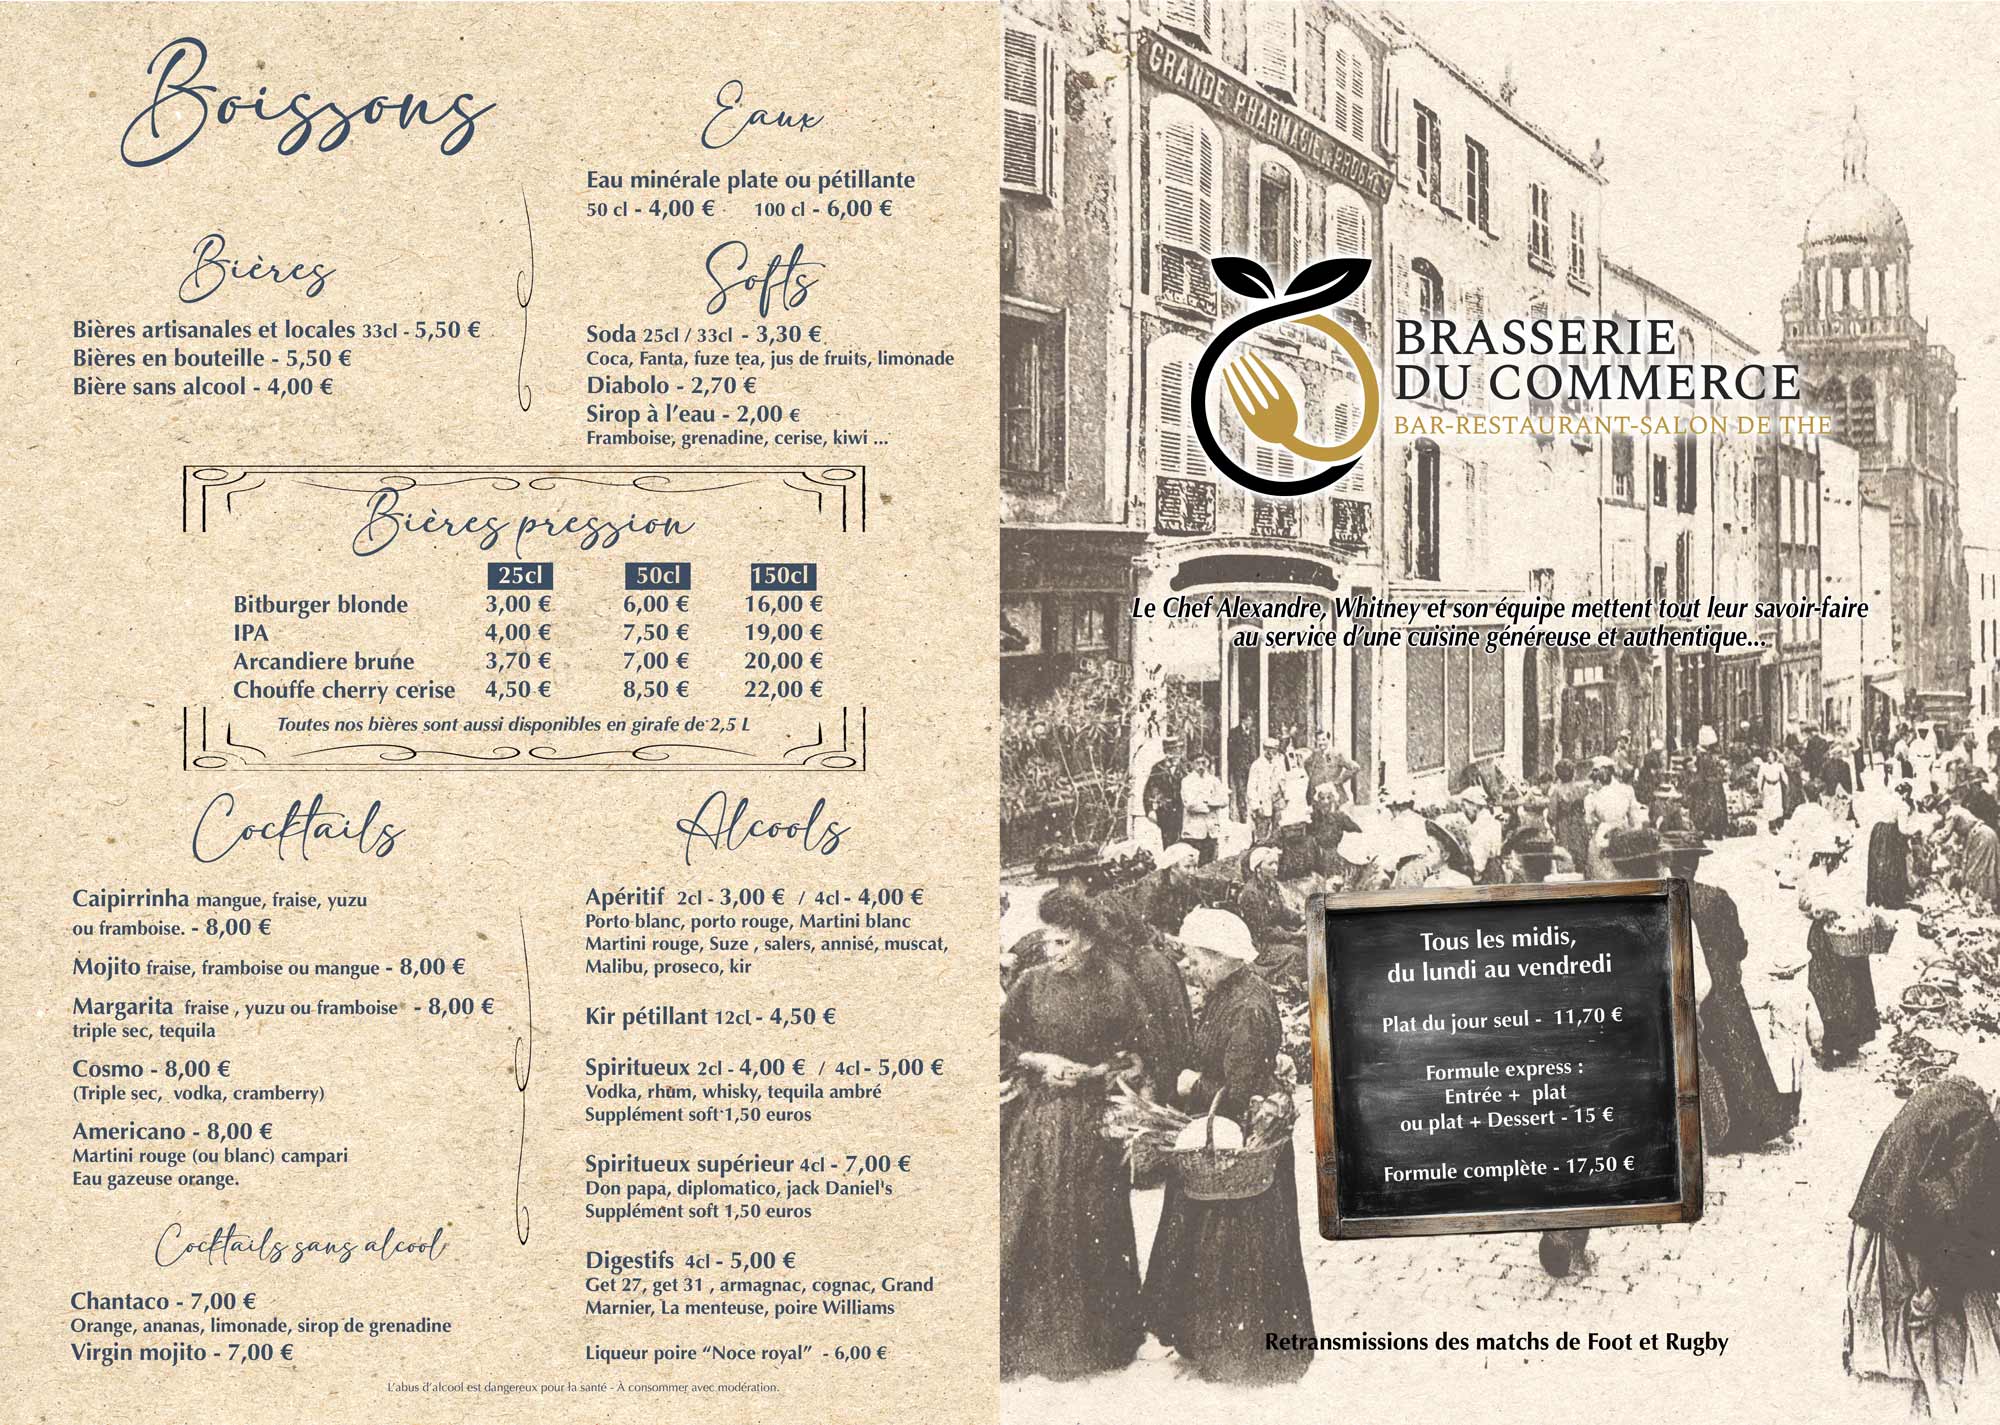 Boissons
Bières
Bières artisanales et locales 33cl - 5,50 €
Bières en bouteille - 5,50 €
Bière sans alcool - 4,00 €
Eaux
Eau minérale plate ou pétillante
50 cl - 4,00 € 100 cl - 6,00 €
Softs
Soda 25cl / 33cl - 3,30 €
Coca, Fanta, fuze tea, jus de fruits, limonade
Diabolo - 2,70 €
Sirop à l'eau - 2,00 €
Framboise, grenadine, cerise, kiwi ...
Bières pression
25cl 50cl 150cl
Bitburger blonde 3,00 € 6,00 € 16,00 €
IPA 4,00 € 7,50 € 19,00 €
Arcandiere brune 3,70 € 7,00 € 20,00 €
Chouffe cherry cerise 4,50 € 8,50 € 22,00 €
Toutes nos bières sont aussi disponibles en girafe de 2,5 L
Cocktails
Caipirrinha mangue, fraise, yuzu
ou framboise. - 8,00 €
Mojito fraise, framboise ou mangue - 8,00 €
Margarita fraise , yuzu ou framboise - 8,00 €
triple sec, tequila
Cosmo - 8,00 €
(Triple sec, vodka, cramberry)
Americano - 8,00 €
Martini rouge (ou blanc) campari
Eau gazeuse orange.
Cocktails sans alcool
Chantaco - 7,00 €
Orange, ananas, limonade, sirop de grenadine
Virgin mojito - 7,00 €
Alcools
Apéritif 2cl - 3,00 € / 4cl - 4,00 €
Porto blanc, porto rouge, Martini blanc
Martini rouge, Suze , salers, annisé, muscat,
Malibu, proseco, kir
Kir pétillant 12cl - 4,50 €
Spiritueux 2cl - 4,00 € / 4cl - 5,00 €
Vodka, rhum, whisky, tequila ambré
Supplément soft 1,50 euros
Spiritueux supérieur 4cl - 7,00 €
Don papa, diplomatico, jack Daniel's
Supplément soft 1,50 euros
Digestifs 4cl - 5,00 €
Get 27, get 31 , armagnac, cognac, Grand
Marnier, La menteuse, poire Williams
Liqueur poire “Noce royal” - 6,00 €
L'abus d'alcool est dangereux pour la santé - À consommer avec modération.
GRANDE PHARMACIE
BRASSERIE
DU COMMERCE
BAR-RESTAURANT-SALON DE THE
Le Chef Alexandre, Whitney et son équipe mettent tout leur savoir-faire
au service d'une cuisine généreuse et authentique...
Tous les midis,
du lundi au vendredi
Plat du jour seul - 11,70 €
Formule express :
Entrée + plat
ou plat + Dessert - 15 €
Formule complète - 17,50 €
Retransmissions des matchs de Foot et Rugby